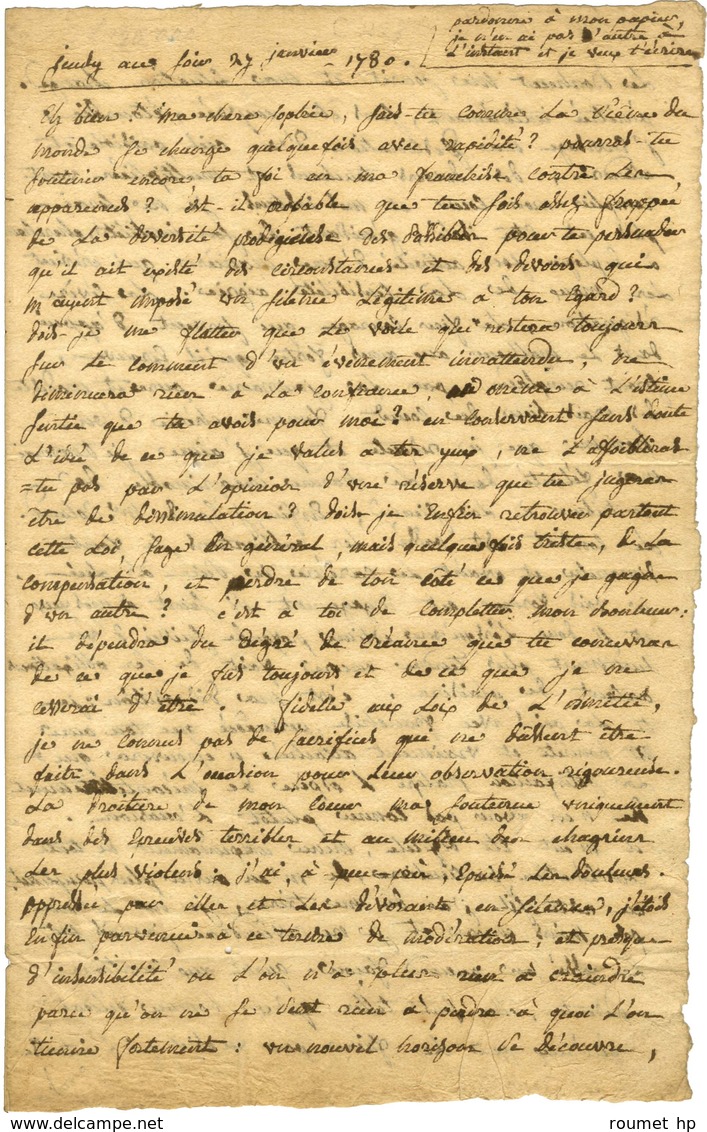 pardonne à mon papier,
je n'en ai pas d'autre à
L'instant et je veux t'écrire
jeudy au soir 27 janvier 1780.
Eh bien! ma chere sophie, sais-tu comme La scêne du
monde se change quelquefois avec rapidité? pourras-tu
soutenir encore ta foi en ma franchise contre Les
apparences? est-il probable que tu sois assez frappée
de La diversité prodigieuse des possibles pour te persuader
qu'il ait existé des circonstances et des devoirs qui
m'ayent imposé un silence Légitime à ton Egard?
dois-je me flatter que Le voile qui restera toujours
sur Le comment d'un événement innattendu, ne
diminuera rien à La confiance, même à L'estime
sentie que tu avois pour moi? en conservant sans doute
L'idée de ce que je valus à tes yeux, ne L'affoibliras
=tu pas par L'opinion d'une réserve que tu jugeras
être de dissimulation? dois-je Enfin retrouver partout
cette Loi sage En général, mais quelque fois triste, de La
compensation, et perdre de ton côté ce que je gagne
d'un autre? c'est à toi de completter mon bonheur:
il dépendra du degré de créance que tu conserveras
de ce que je fus toujours et de ce que je ne
cesserai d'être. fidelle aux Loix de L'amitié,
je ne connus pas de sacrifices qui ne dussent être
faits dans L'occasion pour Leur observation rigoureuse.
La droiture de mon coeur m'a soutenue uniquement
dans des épreuves terribles et au milieu des chagrins
Les plus violens; j'ai, à peu près, Epuisé Les douleurs.
oppressée par elles, et Les dévorante, en silence, j'étois
Enfin parvenue à ce terme de modération, et presque
d'insensibilité où L'on n'a plus rien à craindre
parce qu'on ne se sent rien à perdre à quoi L'on
tienne fortement: un nouvel horizon se découvre,
roumet hp